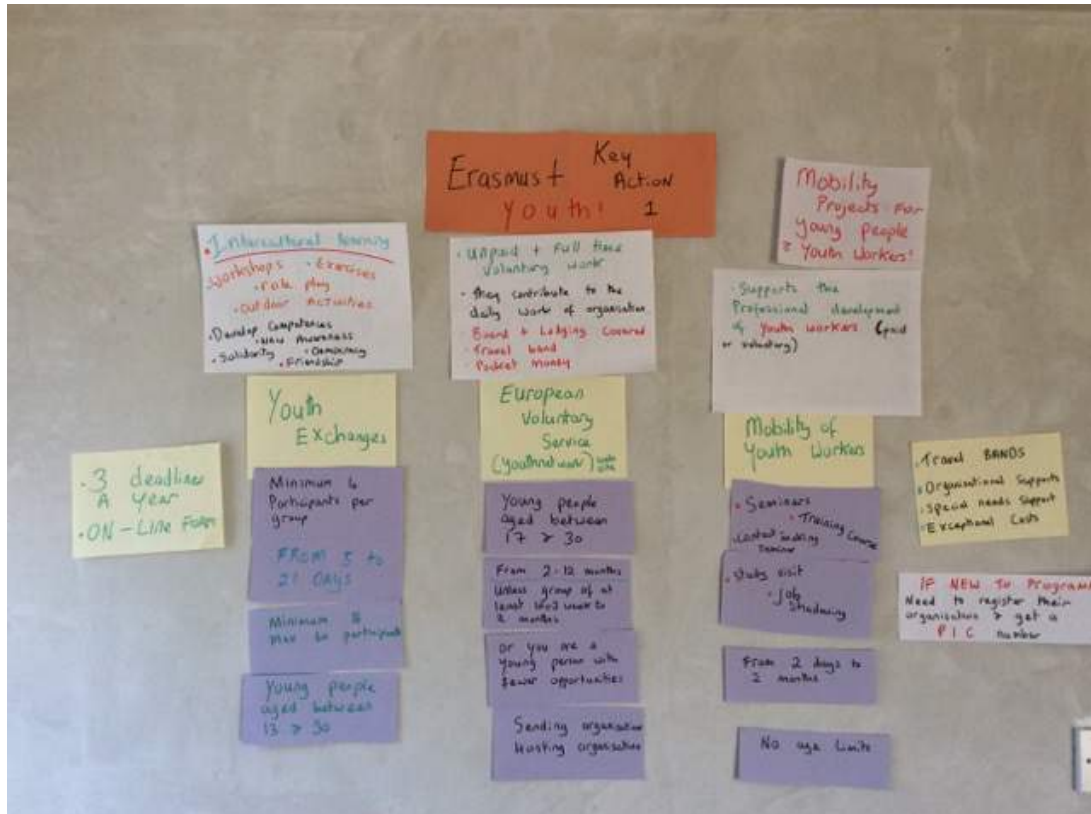 Erasmus+ Key
Action
Youth! 1
Mobility
Projects For
young people
& Youth Workers!
• Intercultural learning
• Workshops • Exercises
• role play
• outdoor Activities
• Develop Competences
• New Awareness
• Solidarity • Democracy
• Friendship
• Unpaid + Full time
Voluntary work
• they contribute to the
daily work of organisation
• Board + Lodging Covered
• Travel band
• Pocket money
• Supports the
Professional development
of Youth workers (paid
or voluntary)
Youth
Exchanges
European
Voluntary
Service
(youthnetwork) web
site
Mobility of
Youth Workers
• 3 deadlines
A year
• ON-Line Form
Minimum
Participants per
group
FROM 5 to
21 DAYS
Minimum
max participants
Young people
aged between
13 & 30
Young people
aged between
17 & 30
From 2-12 months
Unless group of at
least week to
2 months
or you are a
young person with
fewer opportunities
Sending organisation
Hosting organisation
• Seminars
• Training Course
• Contact making
Seminar
• Study visit
• Job
Shadowing
From 2 days to
2 months
No age Limits
• Travel BANDS
• Organisational Supports
• Special needs Support
• Exceptional Costs
IF NEW To Programme
Need to register their
organisation & get a
PIC number